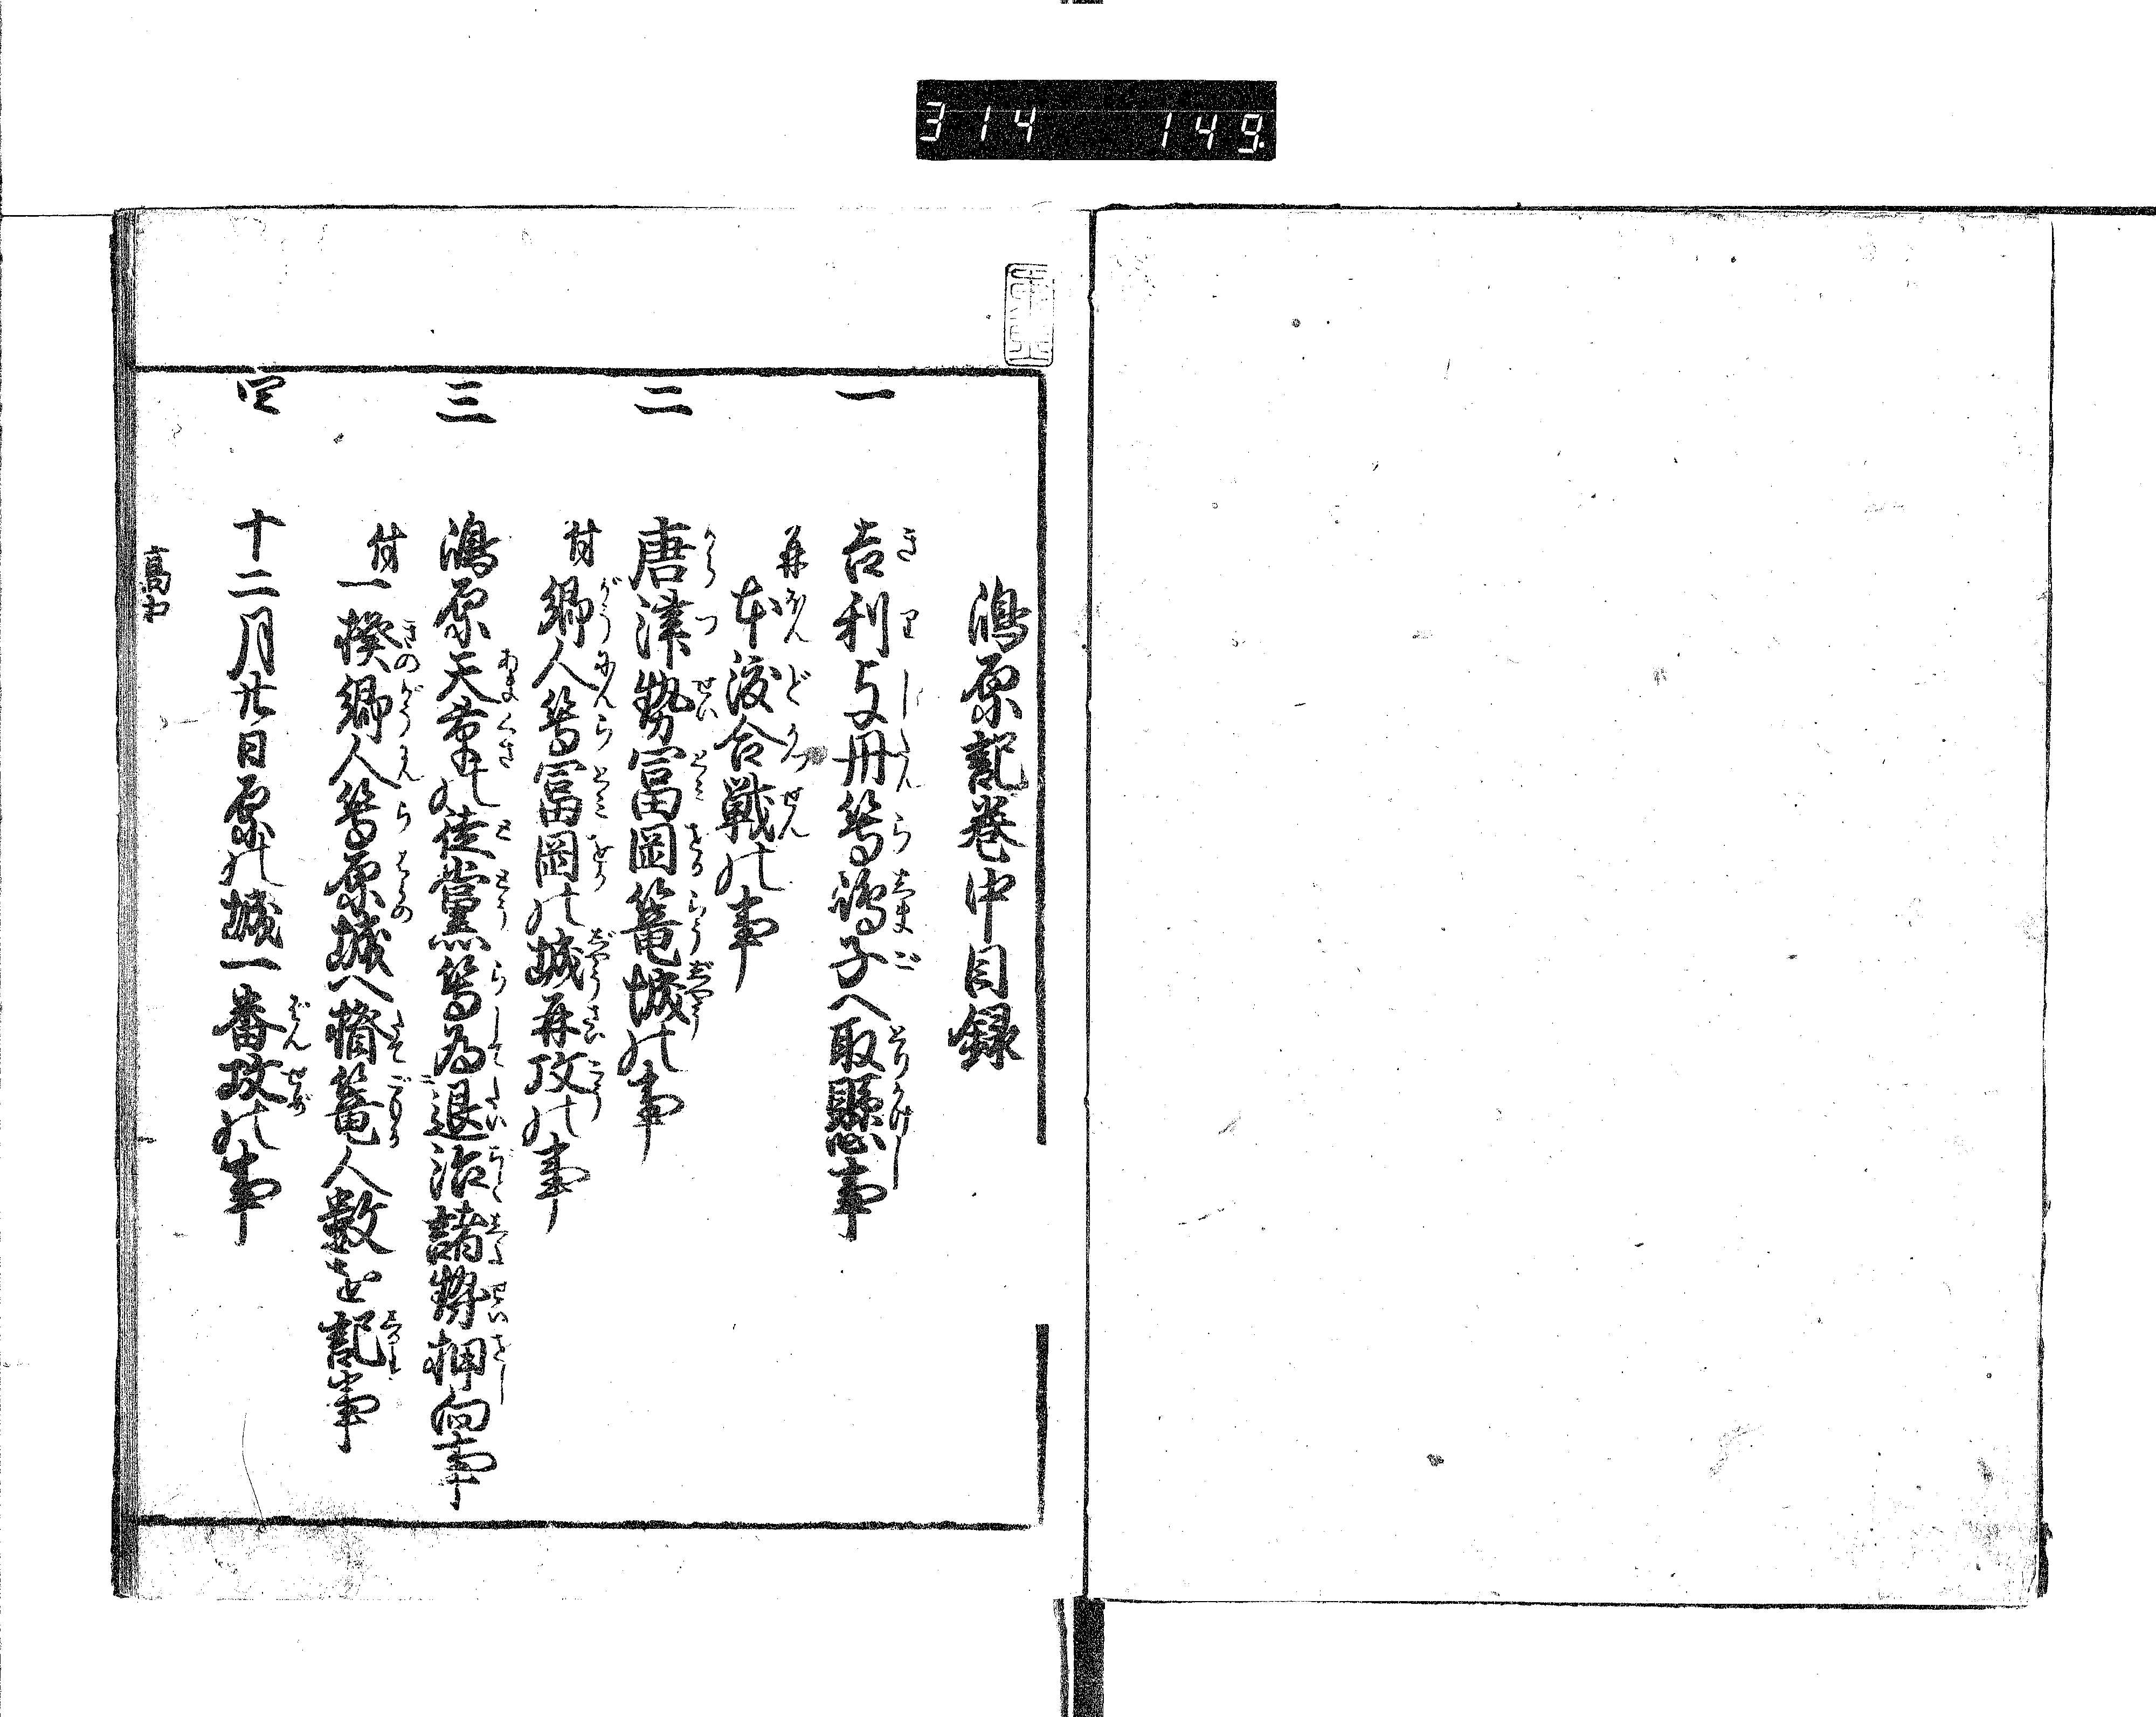 314 149.
嶋原記巻中目録
一 吉利支丹等嶋子へ取懸事
并本渡合戦の事
二 唐津勢冨岡篭城の事
付郷人等冨岡の城再攻の事
三 嶋原天草の徒黨等為退治諸勢押向事
付一揆郷人等原城へ楯篭人数を記事
四 十二月廿日原の城一番攻の事